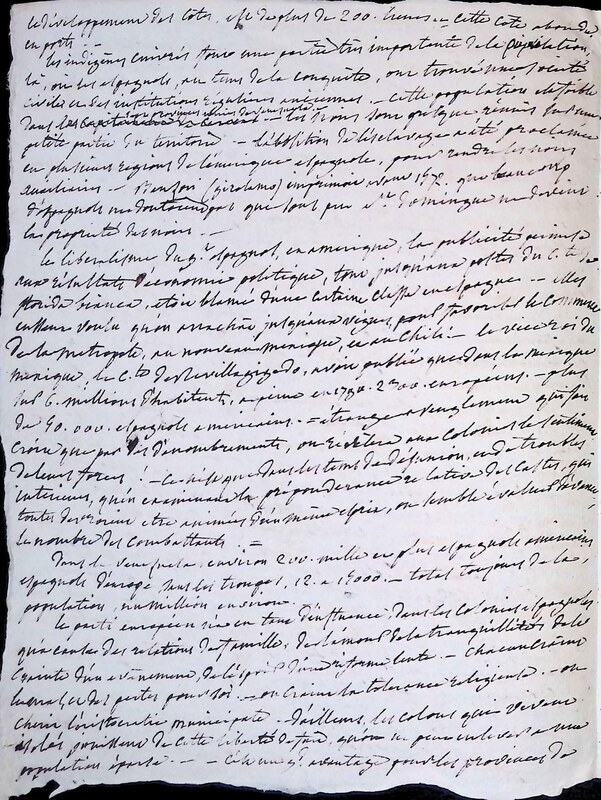 le développement des côtes, est de plus de 200. lieues. - Cette côte abonde
en ports.
les indigènes cuivrés sont une partie très importante de la population,
là, où les espagnols, au tems de la conquête, ont trouvé une société
civilisée et des institutions régulières anciennes. - Cette population est faible
dans les - les noirs sont presque réunis sur une
petite partie du territoire. - L'abolition de l'esclavage a été proclamée
en plusieurs régions de l'amérique espagnole, pour rendre les noirs
auxiliaires. - Benzoni (girolamo) imprimoit avant 1572. que beaucoup
d'espagnols ne doutaient pas que sous peu St. domingue ne devint
la propriété des noirs. -
le libéralisme du gt. espagnol, en amérique, la publicité permise
aux résultats d'économie politique, tout jusqu'aux postes du Cte. de
florida blanca, était blâmé d'une certaine classe en espagne - elles
eussent voulu qu'on arrachât jusqu'aux vignes, pour favoriser le commerce
de la métropole, au nouveau mexique, et au Chili. - le vice roi du
mexique, le Cte. de Revillagigedo, avoit publié que dans la mexique
sur 6. millions d'habitants, à peine en 1790. 2300. européens. - plus
de 50.000. espagnols américains. = étrange aveuglement qui fait
croire que par des dénombrements, on révèlera aux colonies le sentiment
de leurs forces! - Ce n'est que dans les tems de désunion, et de troubles
intérieurs, qu'en examinant la prépondérance relative des Castes, qui
toutes devroient être animées d'un même esprit, on semble évaluer d'avance
le nombre des combattants. =
Dans le venezuela environ 200. mille et plus espagnols américains
espagnols d'europe, sans les troupes, 12. à 15000. - total toujours de la
population, un million environ.
le parti européen n'a eu tant d'influence, dans les colonies espagnoles
qu'à cause des relations de famille, de l'amour de la tranquillité, de la
crainte d'un évènement, de l'espoir d'une réforme lente. - Chacun craint
les pertes pour soi. - on craint la tolérance religieuse. - on
chérit l'aristocratie municipale. D'ailleurs, les colons qui vivent
isolés, jouissent de cette liberté de fait, qu'on ne peut enlever à une
population éparse. - C'est un gd. avantage pour les provinces de